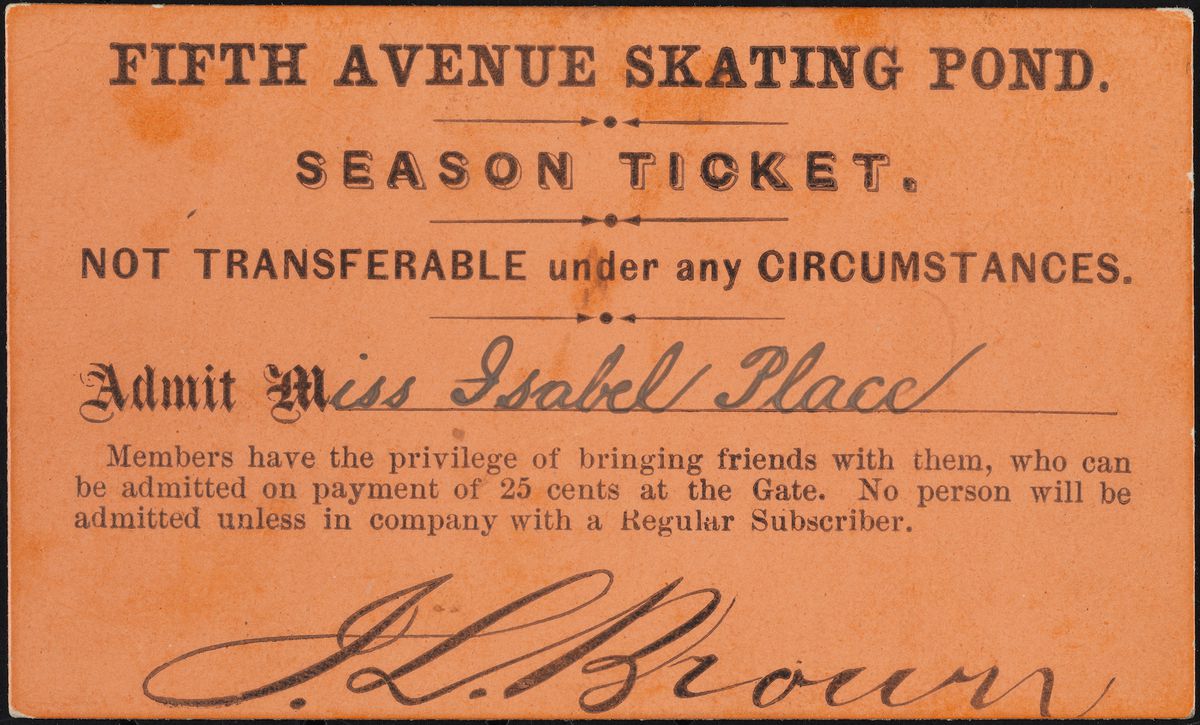 FIFTH AVENUE SKATING POND.
SEASON TICKET.
NOT TRANSFERABLE under any CIRCUMSTANCES.
Admit Miss Isabel Place
Members have the privilege of bringing friends with them, who can
be admitted on payment of 25 cents at the Gate. No person will be
admitted unless in company with a Regular Subscriber.
J. L. Brown